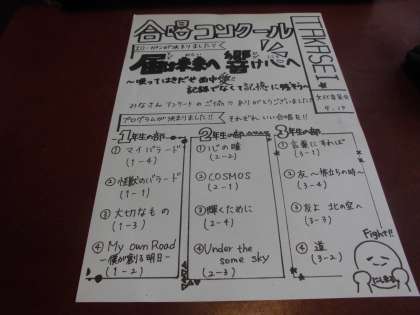 合唱コンクール
ITAKASEI
スローガンが決まりました!!
届け未来へ 響け心へ
〜唄ってはきだせ西中愛!!
記録でなくて記憶に残そう〜
みなさんアンケートのご協力ありがとうございました!!
プログラムが決まりました!!
それぞれ、いい合唱を!!
1年生の部
① マイバラード
(1-4)
② 怪獣のバラード
(1-1)
③ 大切なもの
(1-3)
④ My own Road
-僕が創る明日-
(1-2)
2年生の部
① 心の瞳
(2-2)
② COSMOS
(2-1)
③ 輝くために
(2-4)
④ Under the
some sky
(2-3)
3年生の部
① 言葉にすれば
(3-1)
② 友 〜旅立ちの時〜
(3-4)
③ 友よ 北の空へ
(3-3)
④ 道
(3-2)
Fight!!